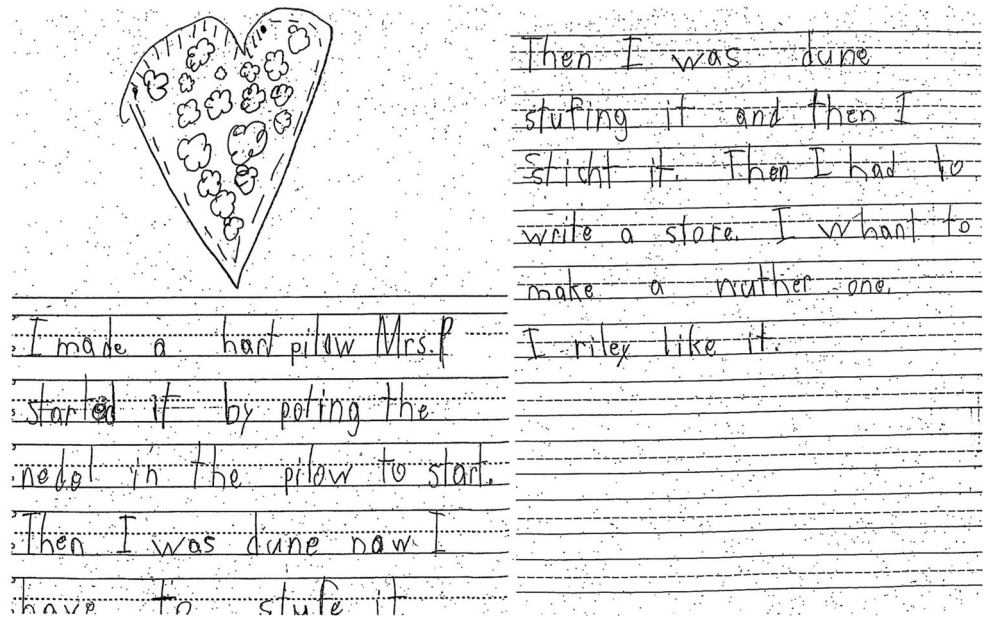 I made a hart pilow Mrs. P
started it by poting the
nedol in the pilow to start.
Then I was dune now I
have to stufe it
Then I was dune
stufing it and then I
Sticht it. Then I had to
write a store. I whant to
make a nuther one.
I riley like it.